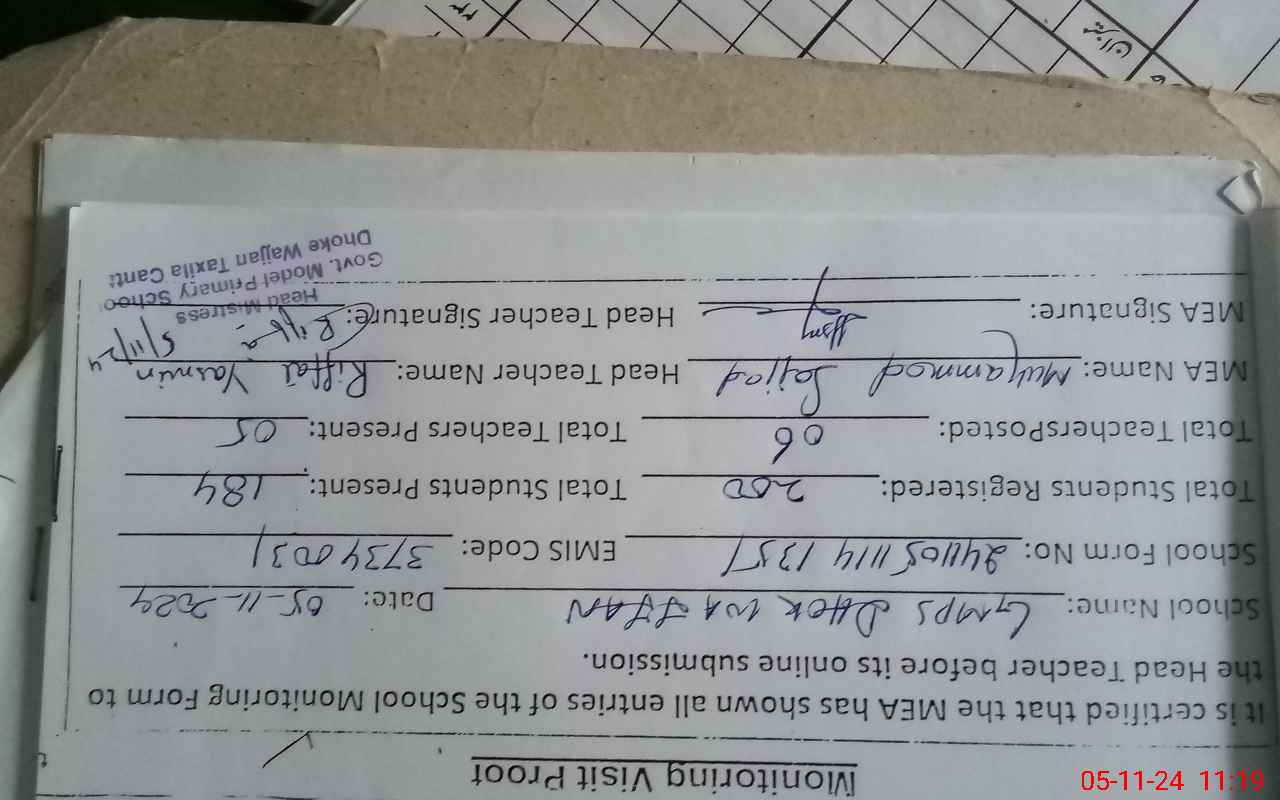 Monitoring Visit Proof
It is certified that the MEA has shown all entries of the School Monitoring Form to
the Head Teacher before its online submission.
School Name: GMPS DHOK WAJJAN Date: 05-11-2024
School Form No: 241105 1114 1351 EMIS Code: 37340031
Total Students Registered: 200 Total Students Present: 184
Total TeachersPosted: 06 Total Teachers Present: 05
MEA Name: Muhammad Sajjad Head Teacher Name: Riffat Yasmin
MEA Signature: Head Teacher Signature: 5/11/24
Head Mistress
Govt. Model Primary School
Dhoke Wajjan Taxila Cantt
05-11-24 11:19